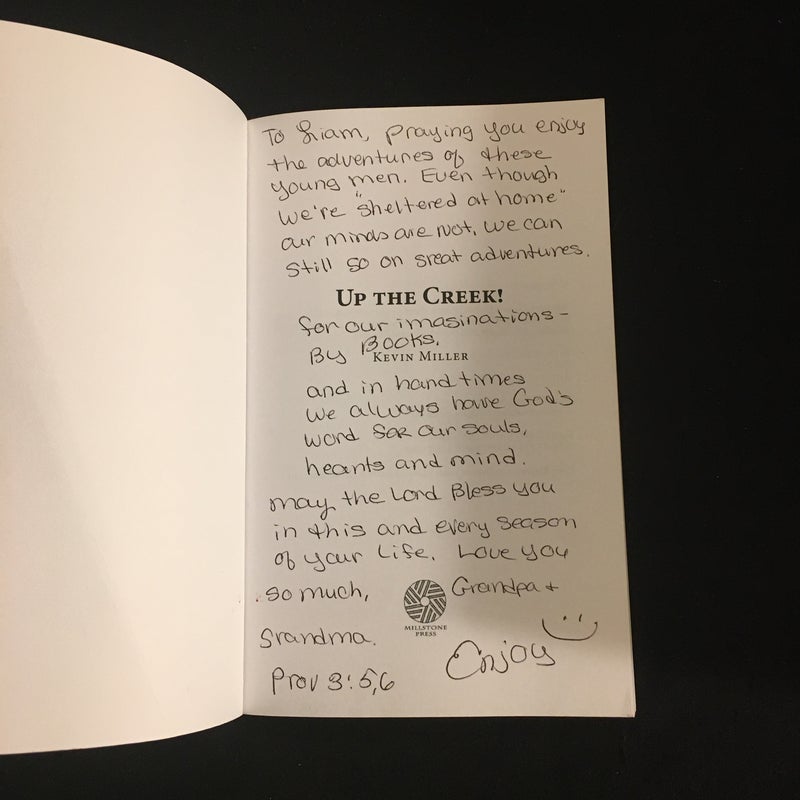 To Liam, praying you enjoy
the adventures of these
young men. Even though
we're "sheltered at home"
our minds are not, we can
still go on great adventures.
UP THE CREEK!
for our imaginations -
By Books.
KEVIN MILLER
and in hard times
we always have God's
word for our souls,
hearts and mind.
may the Lord Bless you
in this and every season
of your life. Love you
so much, Grandpa +
MILLSTONE
PRESS
Grandma.
Enjoy
Prov 3:5,6